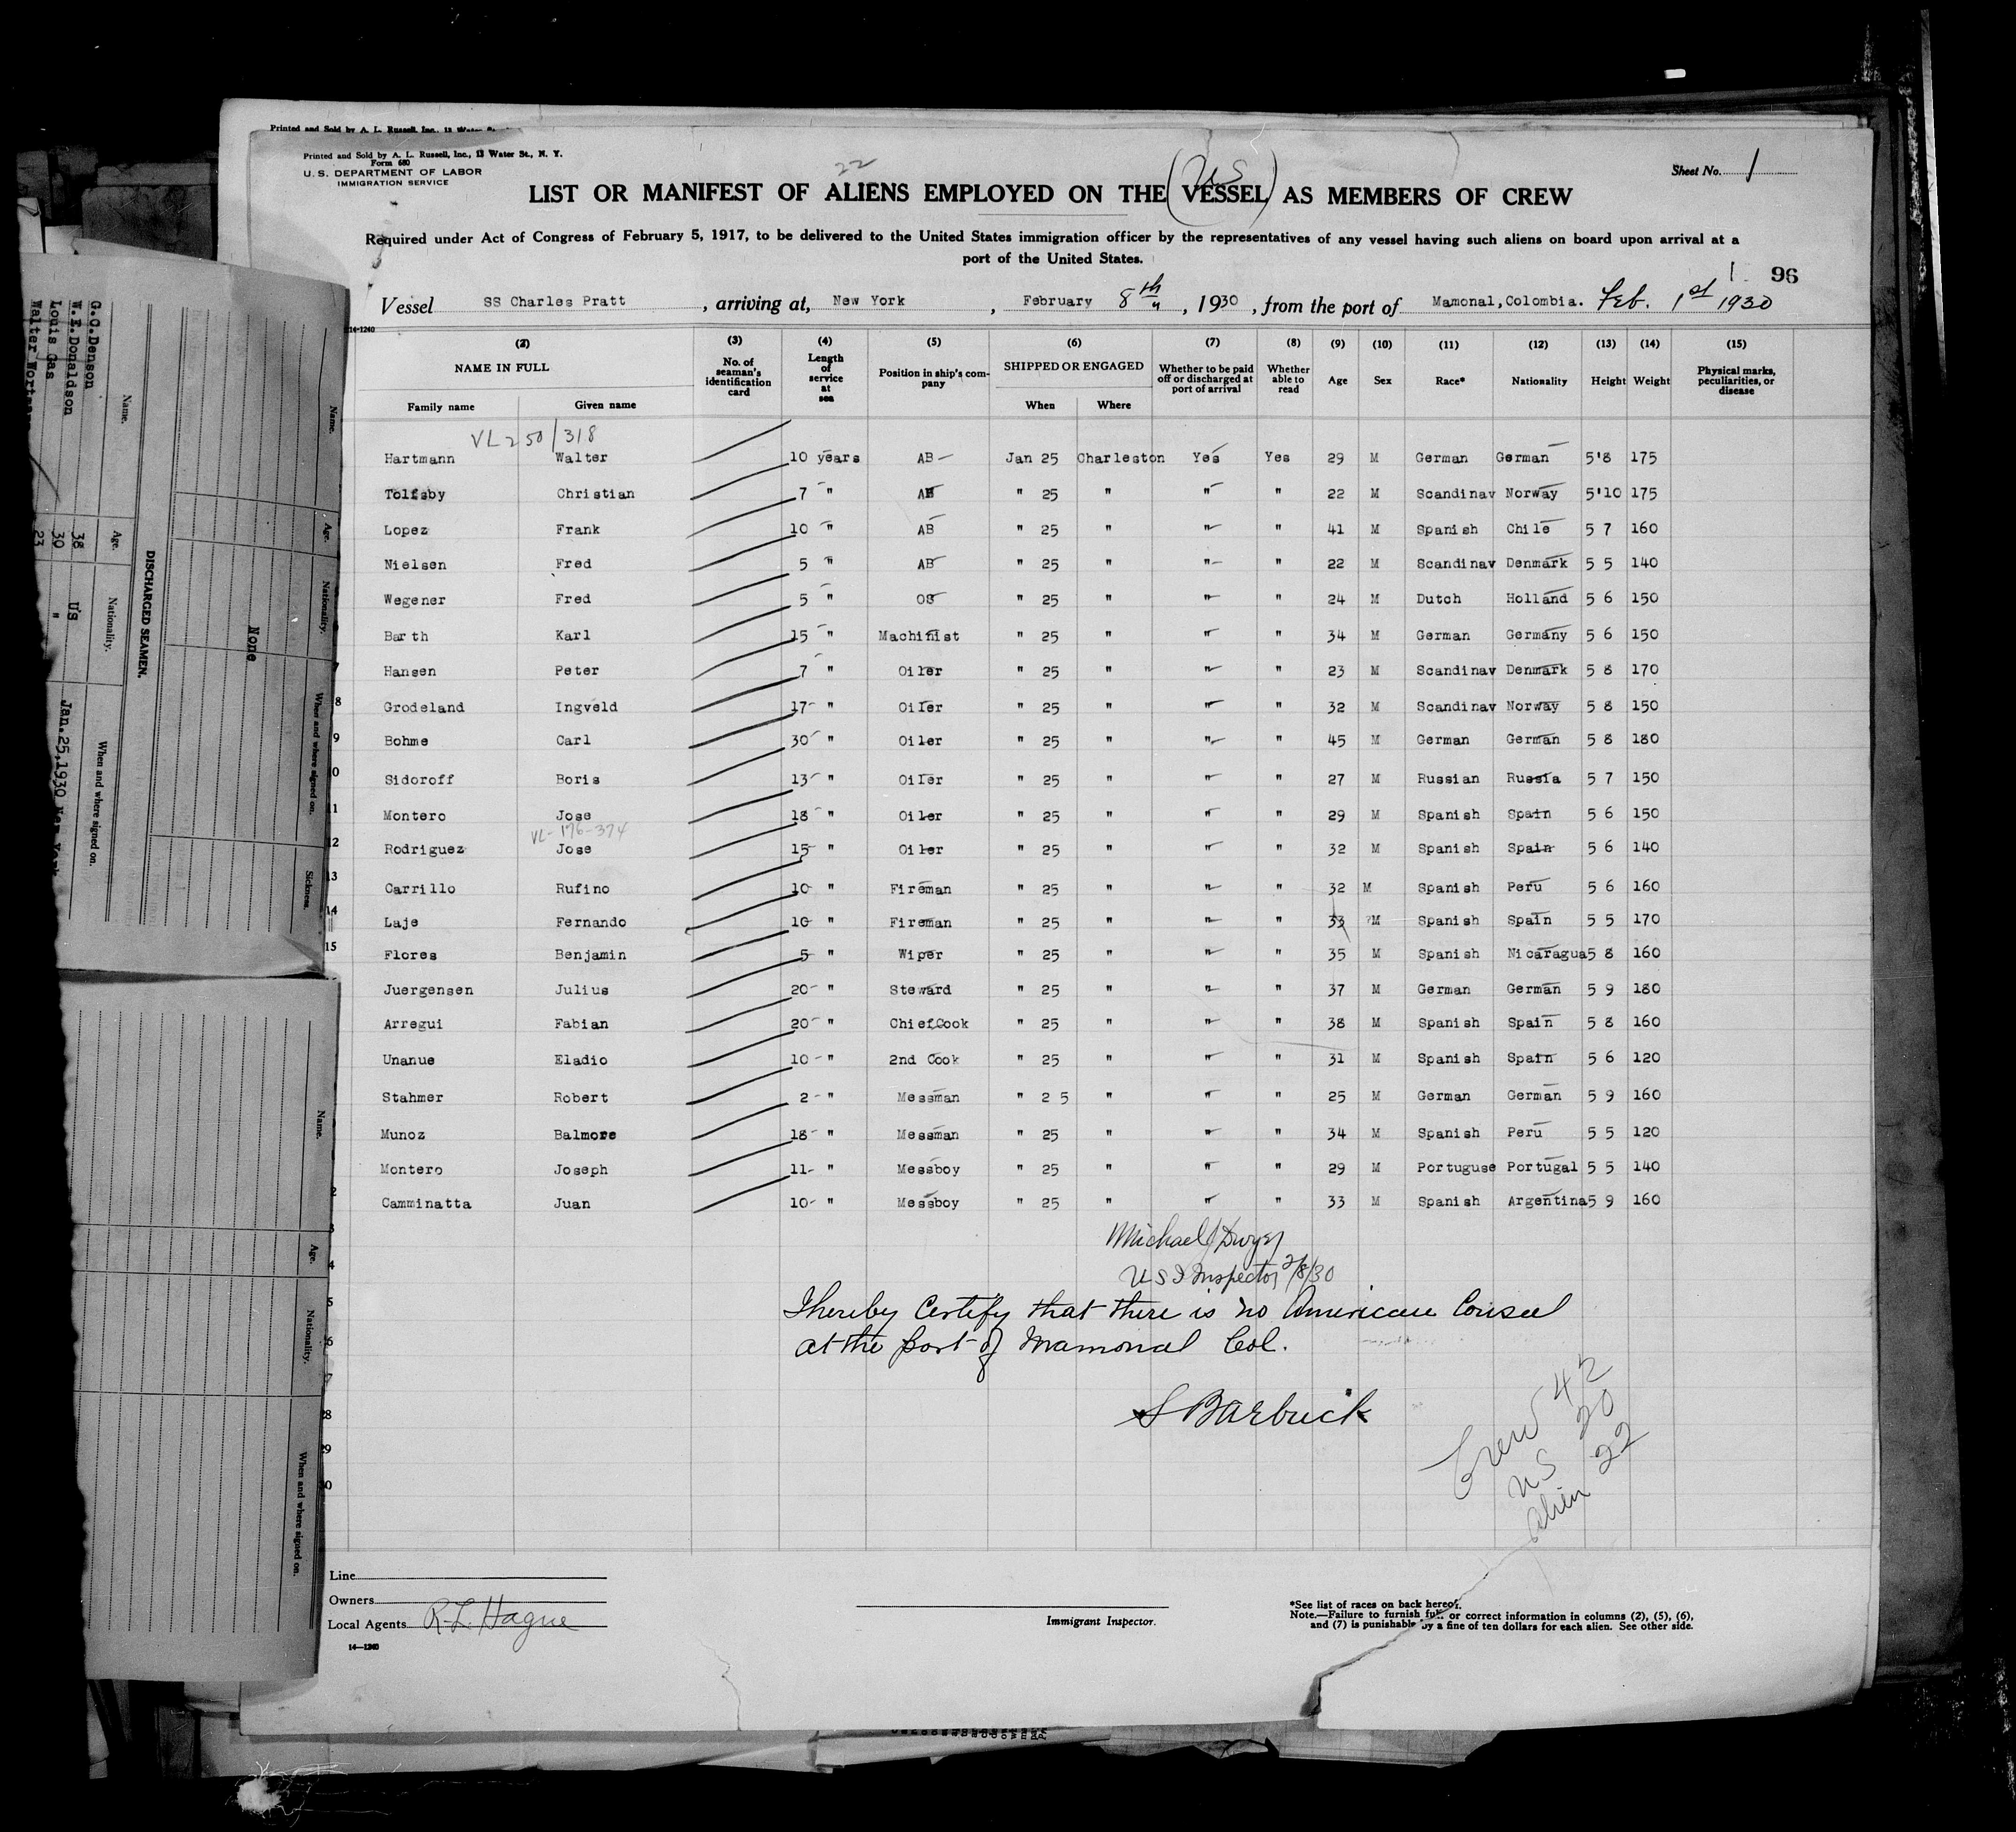 Printed and Sold by A. L. Russell, Inc., 13 Water
Printed and Sold by A. L. Russell, Inc., 13 Water St., N. Y.
Form 680
U. S. DEPARTMENT OF LABOR
IMMIGRATION SERVICE
22
US
Sheet No. 1
LIST OR MANIFEST OF ALIENS EMPLOYED ON THE (VESSEL) AS MEMBERS OF CREW
Required under Act of Congress of February 5, 1917, to be delivered to the United States immigration officer by the representatives of any vessel having such aliens on board upon arrival at a
port of the United States.
1 96
Vessel SS Charles Pratt, arriving at, New York, February 8th, 1930, from the port of Mamonal, Colombia. Feb. 1st 1930
14-1240
(2) (3) (4) (5) (6) (7) (8) (9) (10) (11) (12) (13) (14) (15)
NAME IN FULL No. of seaman's identification card Length of service at sea Position in ship's company SHIPPED OR ENGAGED Whether to be paid off or discharged at port of arrival Whether able to read Age Sex Race* Nationality Height Weight Physical marks, peculiarities, or disease
Family name Given name When Where
VL 250/318
Hartmann Walter 10 years AB Jan 25 Charleston Yes Yes 29 M German German 5'8 175
Tolfsby Christian 7 " AB " 25 " " " 22 M Scandinav Norway 5'10 175
Lopez Frank 10 " AB " 25 " " " 41 M Spanish Chile 5 7 160
Nielsen Fred 5 " AB " 25 " " " 22 M Scandinav Denmark 5 5 140
Wegener Fred 5 " OS " 25 " " " 24 M Dutch Holland 5 6 150
Barth Karl 15 " Machinist " 25 " " " 34 M German Germany 5 6 150
7 Hansen Peter 7 " Oiler " 25 " " " 23 M Scandinav Denmark 5 8 170
8 Grodeland Ingveld 17 " Oiler " 25 " " " 32 M Scandinav Norway 5 8 150
9 Bohme Carl 30 " Oiler " 25 " " " 45 M German German 5 8 180
0 Sidoroff Boris 13 " Oiler " 25 " " " 27 M Russian Russia 5 7 150
11 Montero Jose 18 " Oiler " 25 " " " 29 M Spanish Spain 5 6 150
VL-176-374
12 Rodriguez Jose 15 " Oiler " 25 " " " 32 M Spanish Spain 5 6 140
13 Carrillo Rufino 10 " Fireman " 25 " " " 32 M Spanish Peru 5 6 160
14 Laje Fernando 10 " Fireman " 25 " " " 33 M Spanish Spain 5 5 170
15 Flores Benjamin 5 " Wiper " 25 " " " 35 M Spanish Nicaragua 5 8 160
Juergensen Julius 20 " Steward " 25 " " " 37 M German German 5 9 180
Arregui Fabian 20 " Chief Cook " 25 " " " 38 M Spanish Spain 5 8 160
Unanue Eladio 10 " 2nd Cook " 25 " " " 31 M Spanish Spain 5 6 120
Stahmer Robert 2 " Messman " 2 5 " " " 25 M German German 5 9 160
Munoz Balmore 18 " Messman " 25 " " " 34 M Spanish Peru 5 5 120
Montero Joseph 11 " Messboy " 25 " " " 29 M Portuguse Portugal 5 5 140
Camminatta Juan 10 " Messboy " 25 " " " 33 M Spanish Argentina 5 9 160
Michael Dwyer
U S I Inspector 2/8/30
I hereby Certify that there is no American Consul
at the port of Mamonal Col.
S Barbuck
Crew 42
US 20
Alien 22
Line
Owners
Local Agents R. L. Hague
14-1240
Immigrant Inspector.
*See list of races on back hereof.
Note.—Failure to furnish full or correct information in columns (2), (5), (6),
and (7) is punishable by a fine of ten dollars for each alien. See other side.
Name. Age. Nationality. When and where signed on. Sickness.
None
DISCHARGED SEAMEN.
Name. Age. Nationality. When and where signed on.
G.C.Denson
W.E.Donaldson 38 US Jan.25,1930 New York
Louis Gas 30 "
Walter 23
Name. Age. Nationality. When and where signed on.